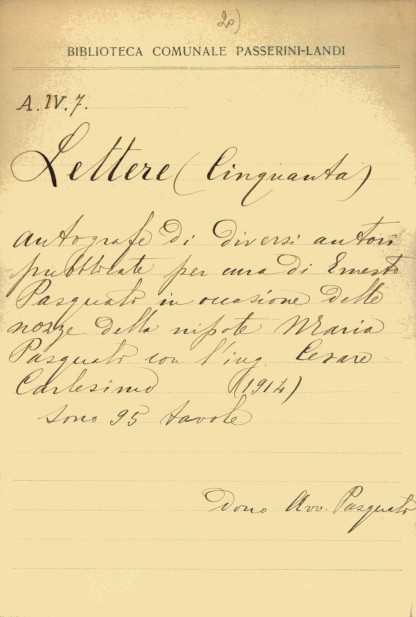 20)
BIBLIOTECA COMUNALE PASSERINI-LANDI
A. IV. 7.
Lettere (Cinquanta)
autografe di diversi autori
pubblicate per cura di Ernesto
Pasquali in occasione delle
nozze della nipote Maria
Pasquali con l'ing. Cesare
Carlesimo (1914)
sono 95 tavole
Dono Avv. Pasquali